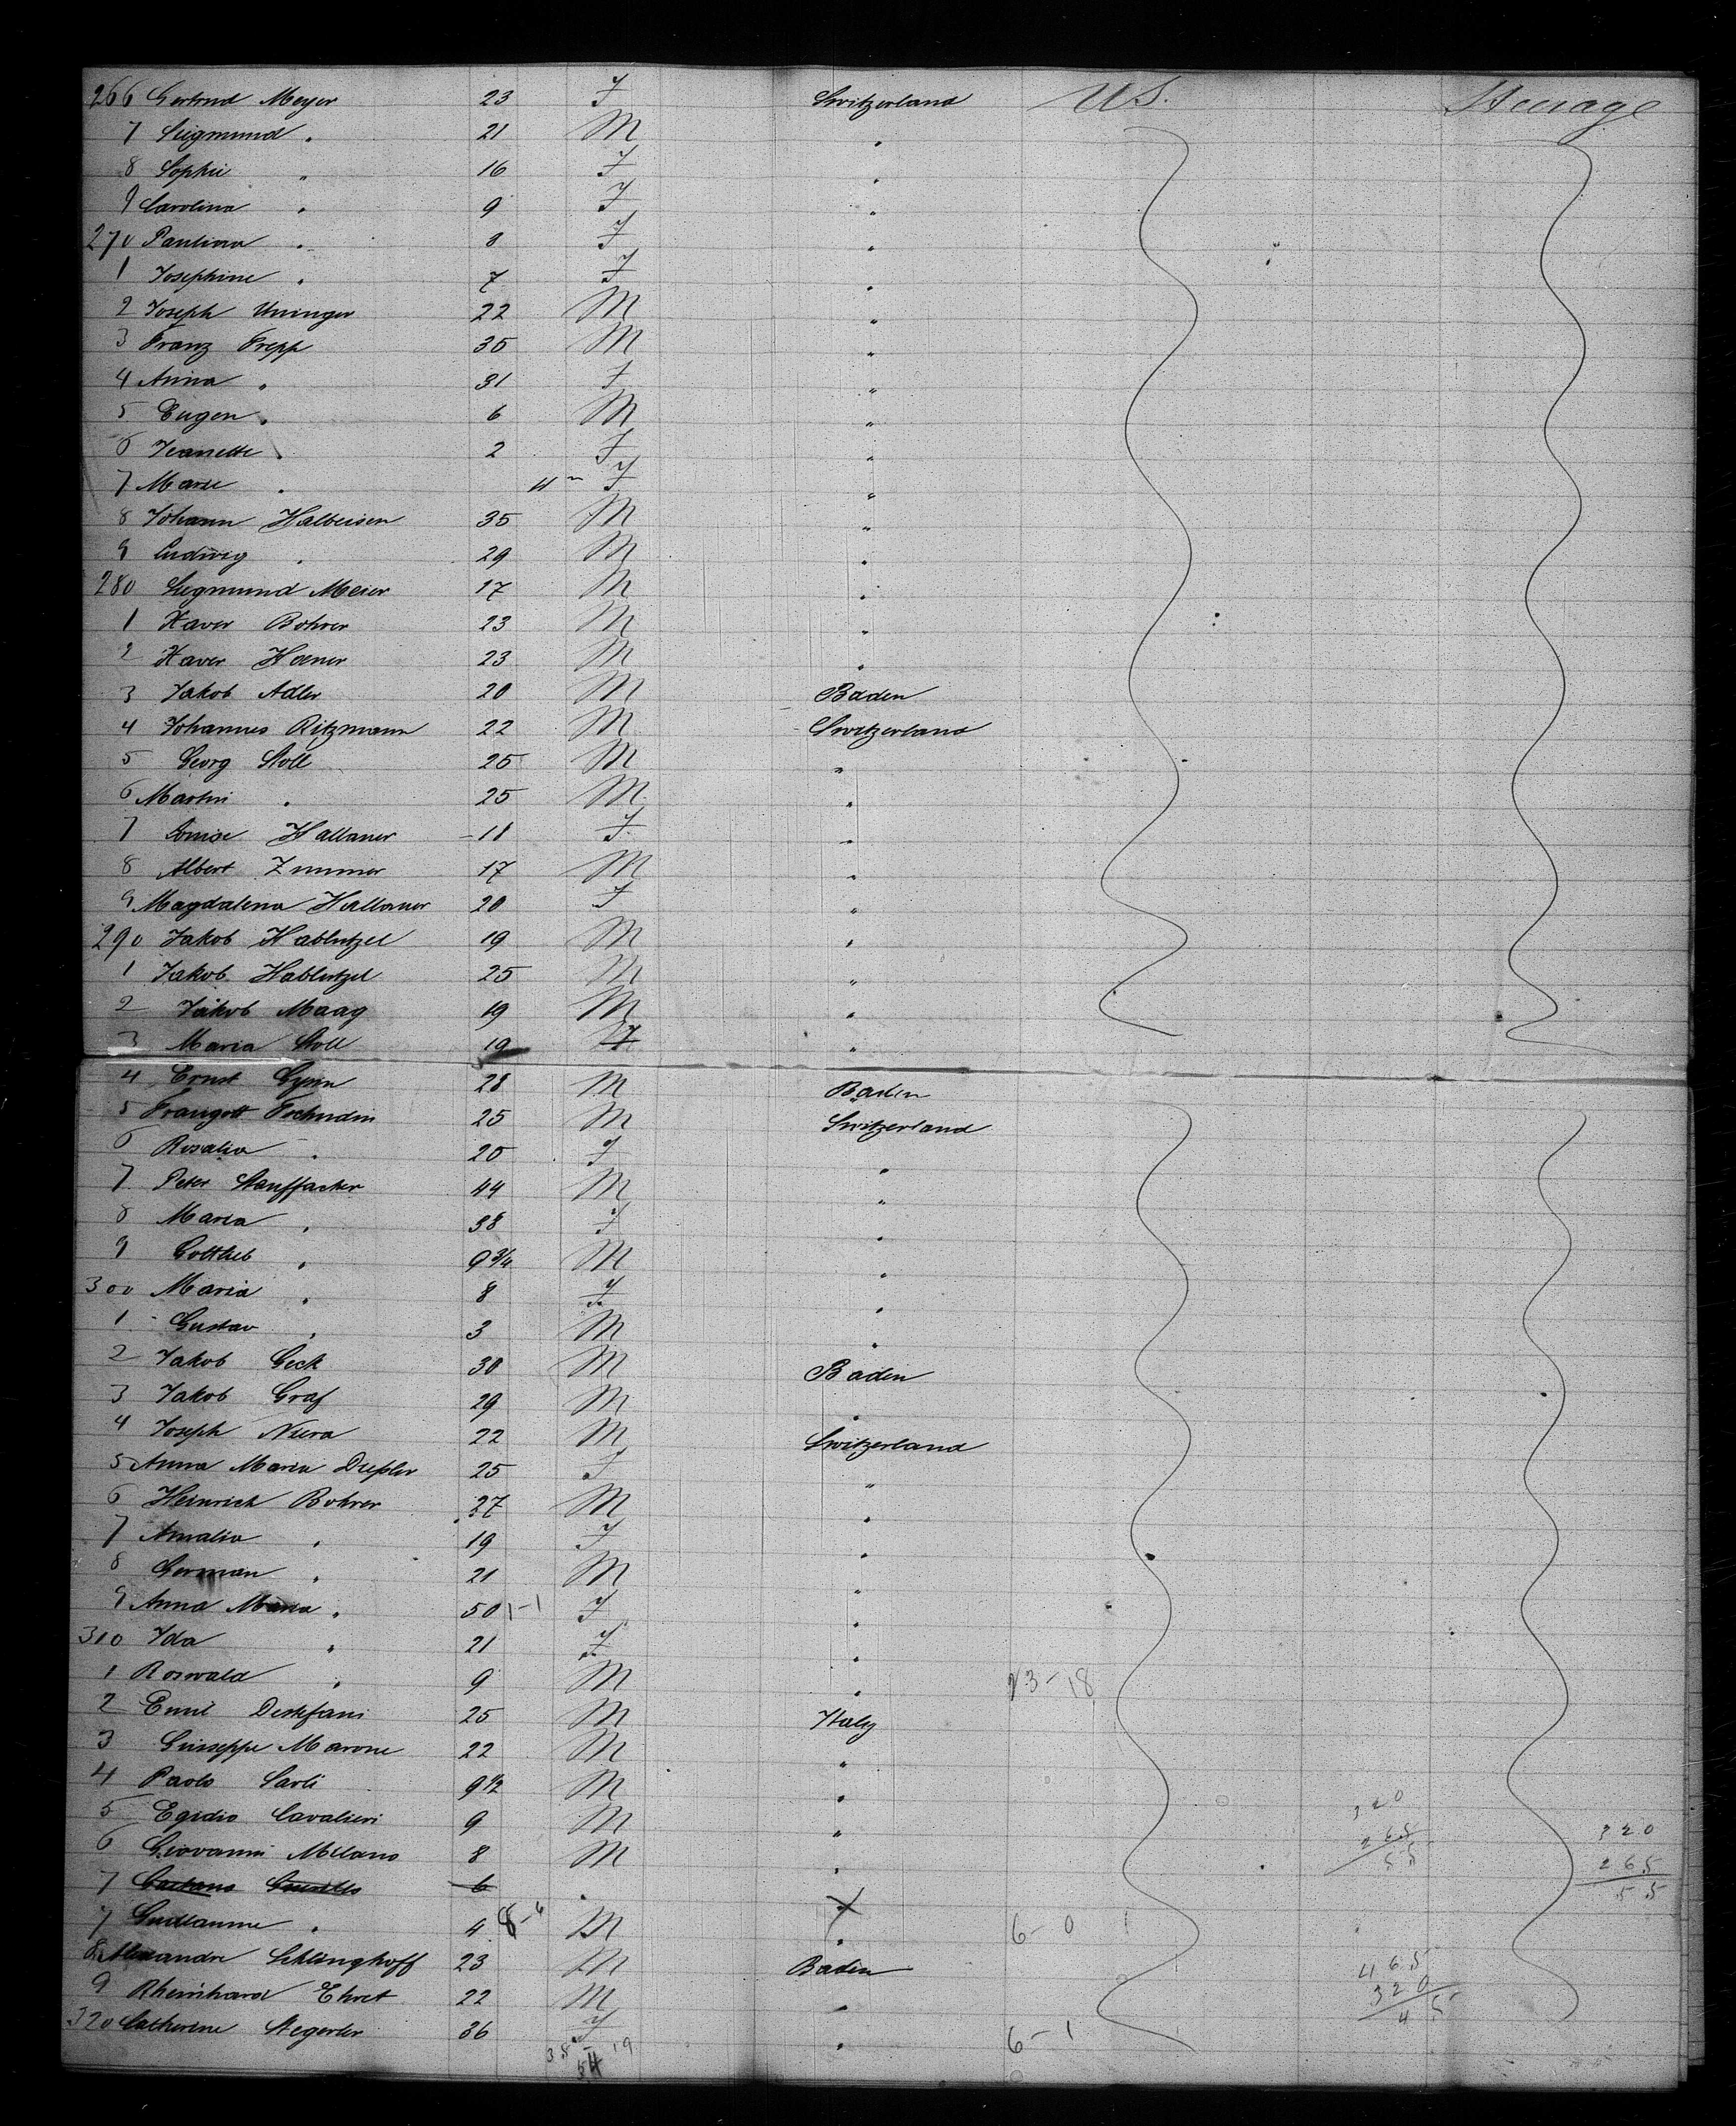 266 Gertrud Meyer 23 F Switzerland US. Steerage
7 Siegmund " 21 M "
8 Sophie " 16 F "
9 Carolina " 9 F "
270 Paulina " 8 F "
1 Josephine " 7 F "
2 Joseph Uninger 22 M "
3 Franz Trepp 35 M "
4 Anna " 31 F "
5 Eugen " 6 M "
6 Jeanette " 2 F "
7 Marie " 11 m F "
8 Johann Halbeisen 35 M "
9 Ludwig " 29 M "
280 Siegmund Meier 17 M "
1 Xaver Bohrer 23 M "
2 Xaver 23 M "
3 Jakob Adler 20 M Baden
4 Johannes Ritzmann 22 M Switzerland
5 Georg Stoll 25 M "
6 Martin " 25 M "
7 Louise Hallauer 11 F "
8 Albert Zimmer 17 M "
9 Magdalena Hallauer 20 F "
290 Jakob Hablutzel 19 M "
1 Jakob Hablutzel 25 M "
2 Jakob Maag 19 M "
3 Maria Stoll 19 F "
4 Ernst 28 M Baden
5 Traugott Tschudin 25 M Switzerland
6 Rosalia " 20 F "
7 Peter Stauffacher 44 M "
8 Maria " 38 F "
9 Gottlieb " 9 3/4 M "
300 Maria " 8 F "
1 Gustav " 3 M "
2 Jakob Geck 30 M Baden
3 Jakob Graf 29 M "
4 Joseph 22 M Switzerland
5 Anna Maria 25 F "
6 Heinrich Bohrer 27 M "
7 Amalia " 19 F "
8 German " 21 M "
9 Anna Maria " 50 1-1 F "
310 Ida " 21 F "
1 Roswald " 9 M " 23-18
2 Emil Destefani 25 M Italy
3 Guiseppe Marone 22 M "
4 Paolo Carli 9 1/2 M "
5 Egidio Cavalieri 9 M " 320
6 Giovanni Milano 8 M " 265 320
55 265
7 Gaetano 6 " 55
7 Guillaume " 4 8-6 M " 6-0
8 Alexandre Schlinghoff 23 M Baden 465
9 Rheinhard Ehret 22 M " 320
320 Catherine Stegerer 36 F " 6-1 45
35 19
54